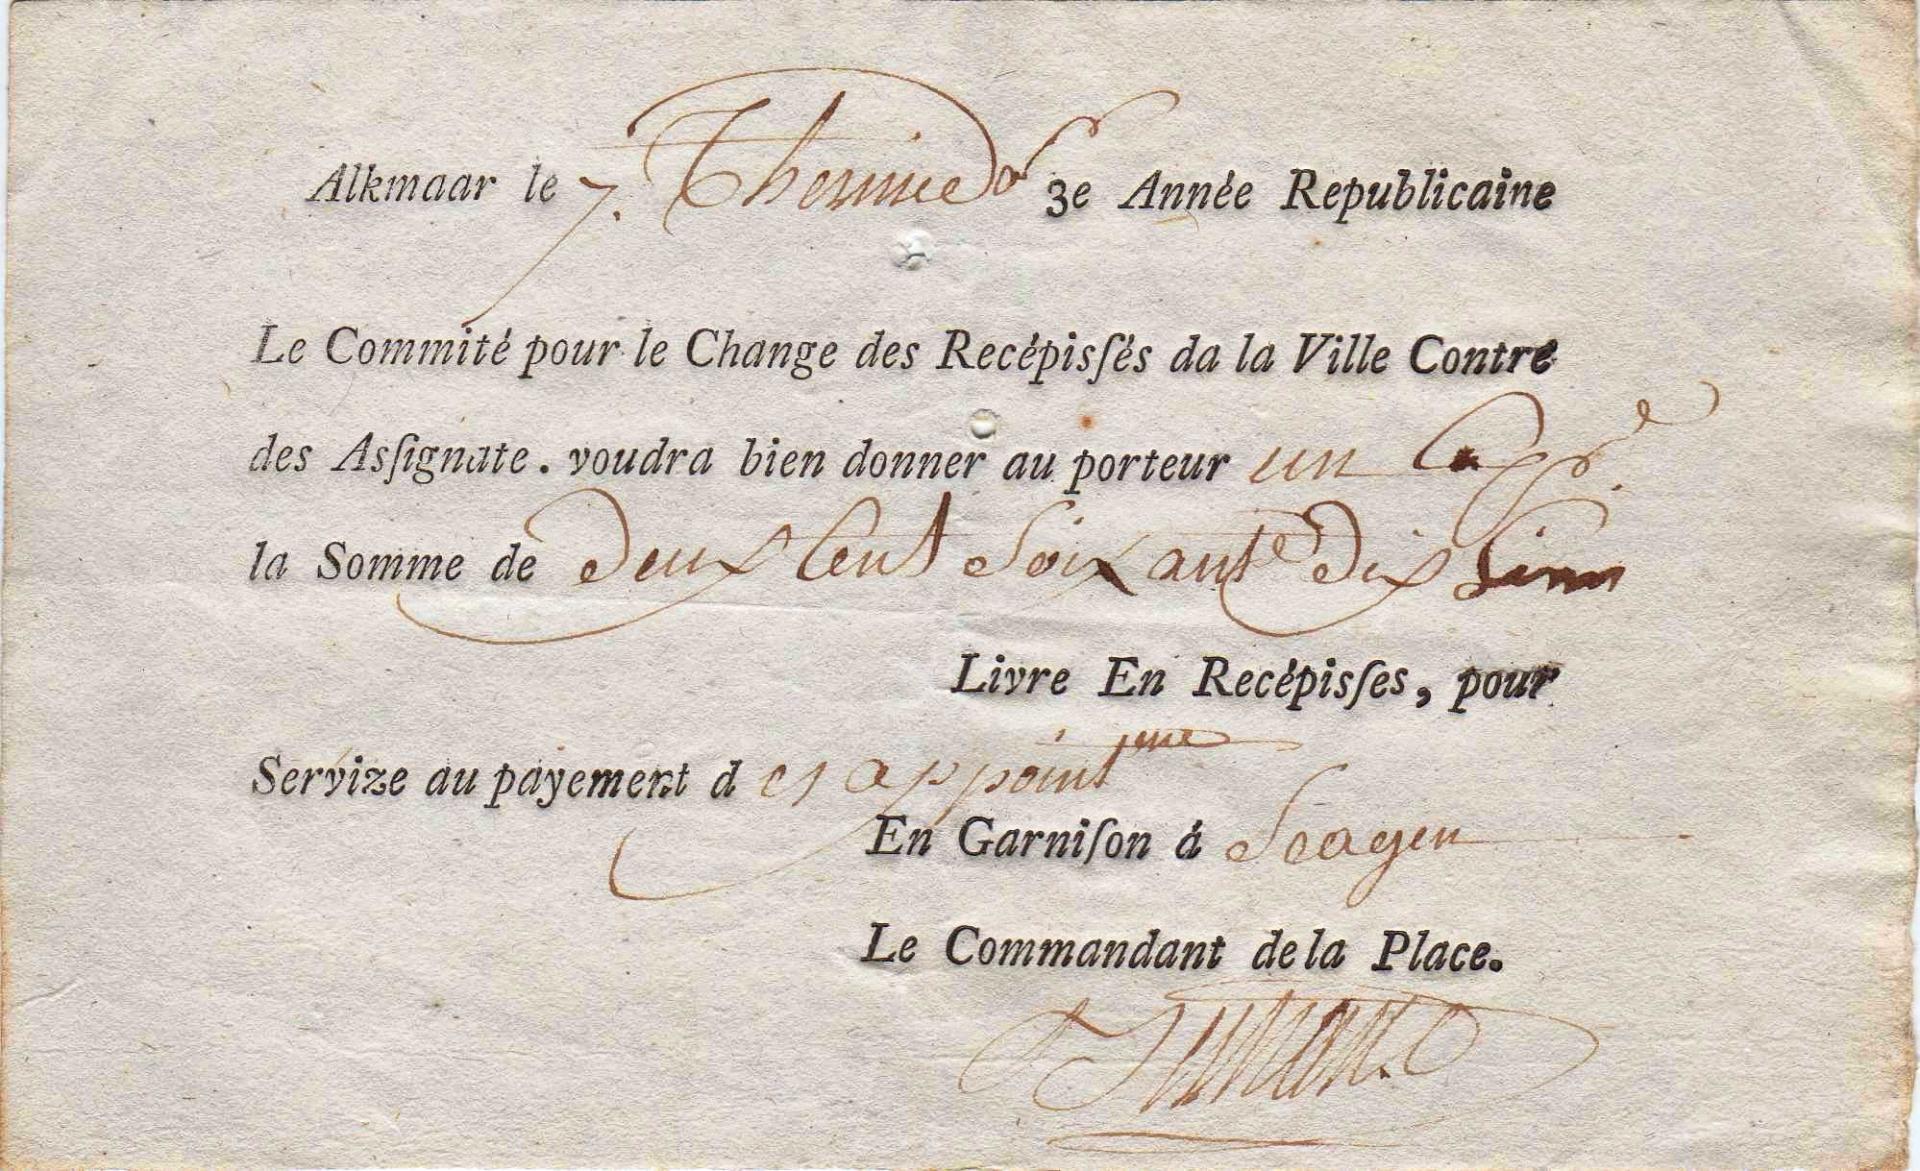 Alkmaar le 7. Thermidor 3e Année Republicaine
Le Commité pour le Change des Recépisſés da la Ville Contre
des Asſignate. voudra bien donner au porteur un
la Somme de Deux Cent Soixante Dix
Livre En Recépisſes, pour
Servize au payement d es appointeme
En Garniſon á Scagen
Le Commandant de la Place.